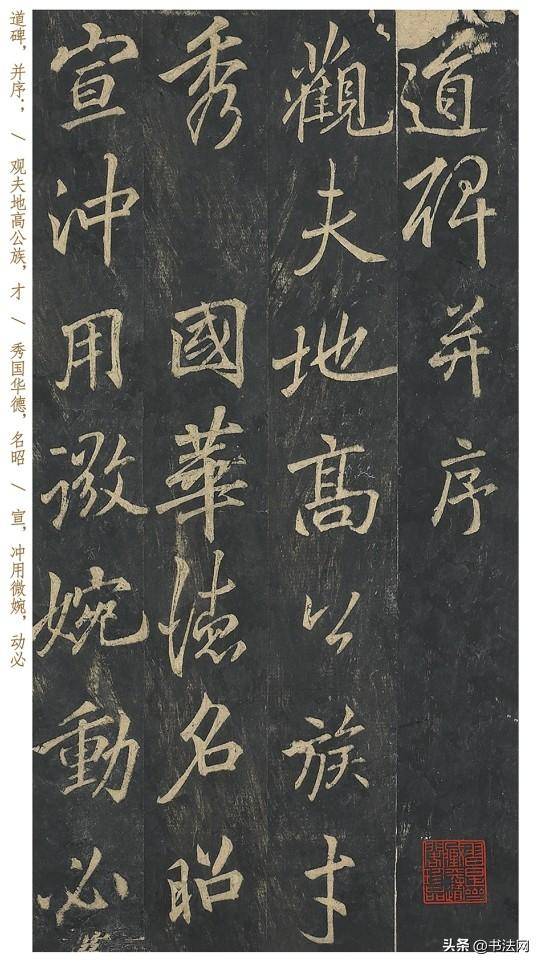 道碑并序
觀夫地高公族才
秀國華德名昭
宣沖用微婉動必
道碑，并序； / 观夫地高公族，才 / 秀国华德，名昭 / 宣，冲用微婉，动必
头条 @书法网